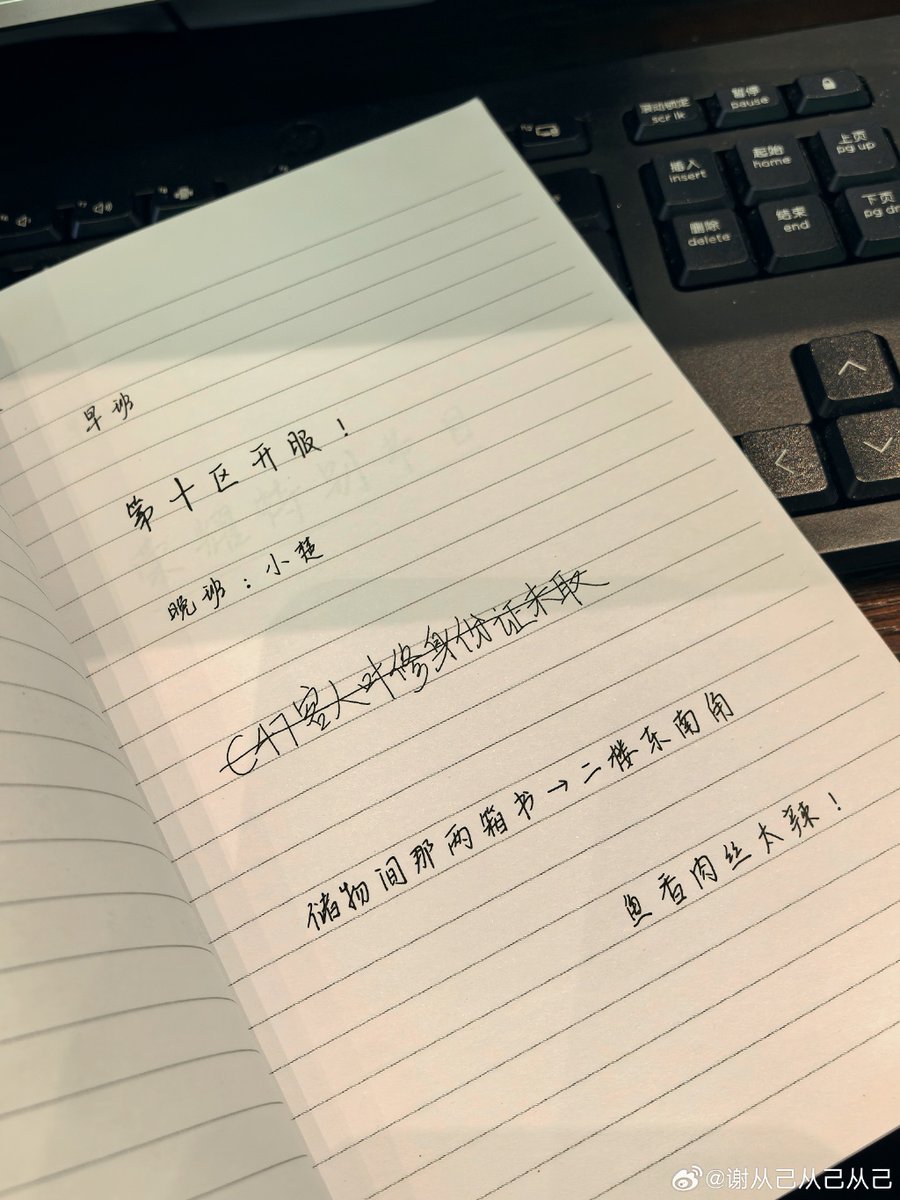 滚动锁定
scr lk
暂停
pause
插入
insert
起始
home
上页
pg up
删除
delete
结束
end
下页
pg dn
早班
第十区开服！
晚班：小楚
C47客人叶修身份证未取
储物间那两箱书→二楼东南角
鱼香肉丝太辣！
@谢从己从己从己